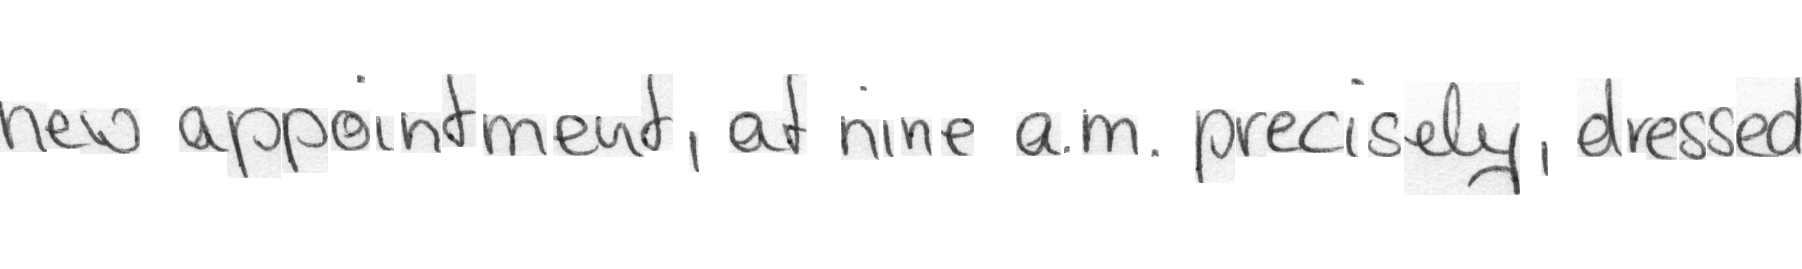 new appointment, at nine a.m. precisely, dressed